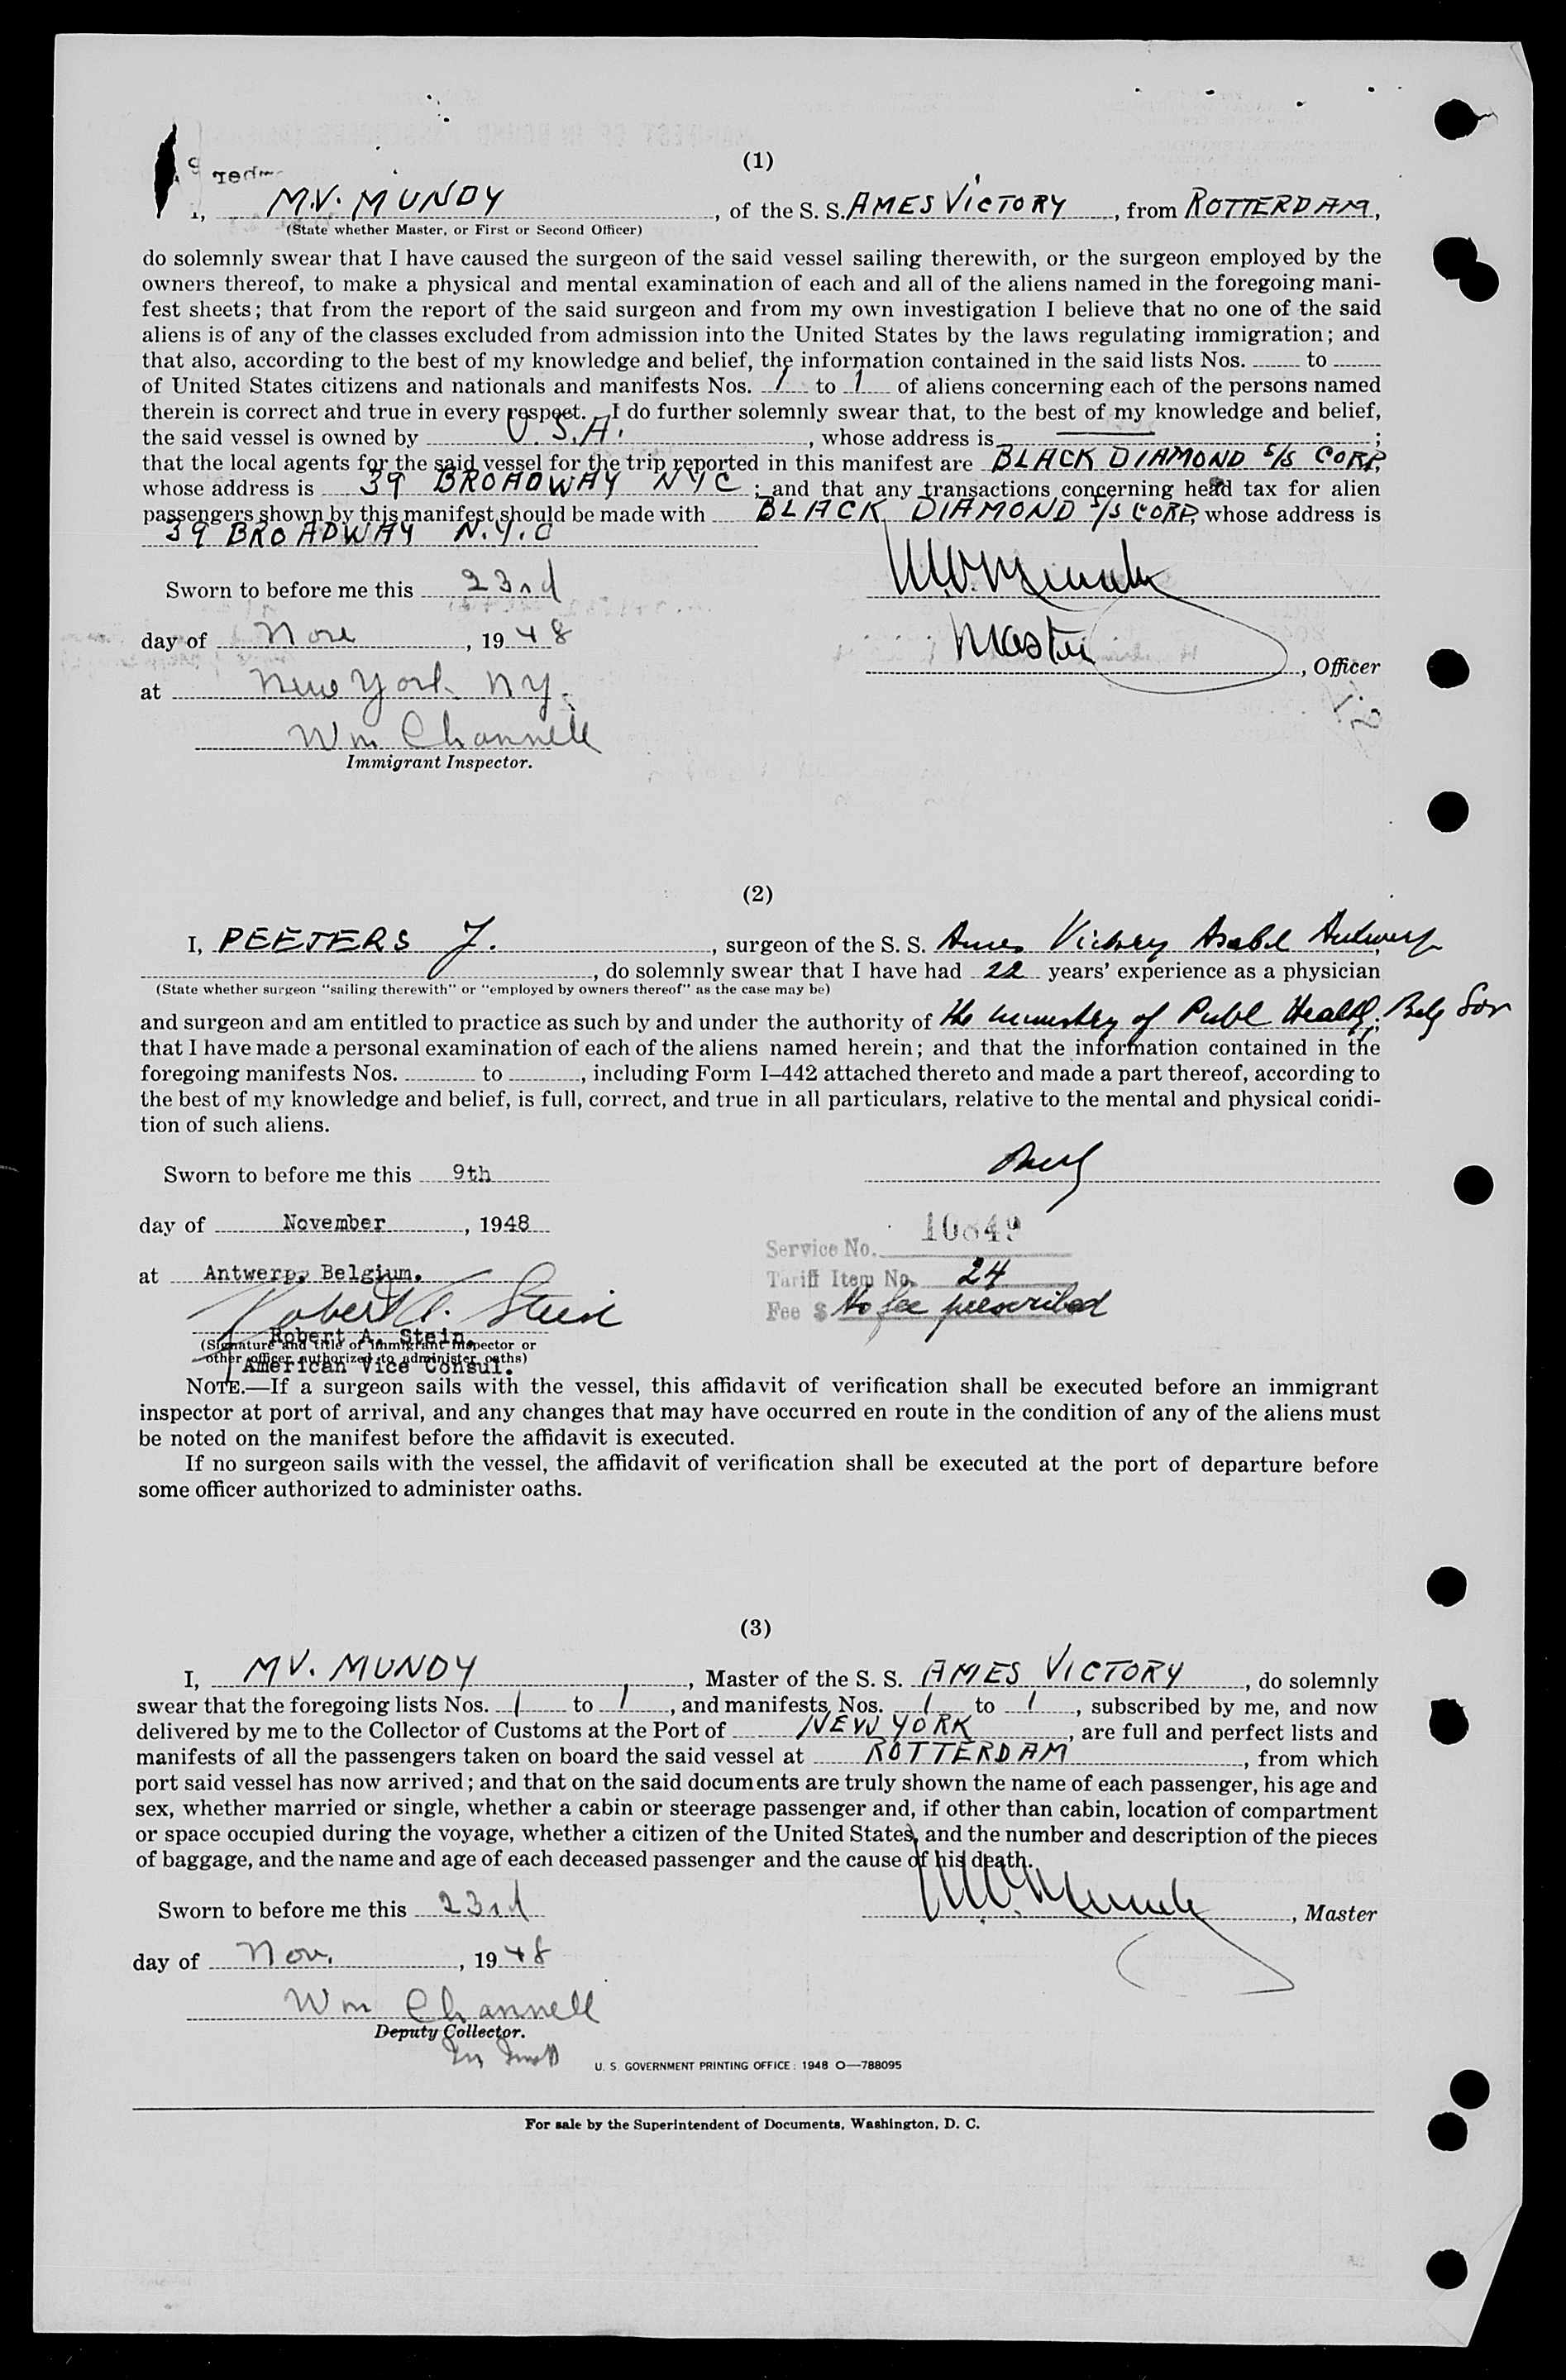 (1)
I, M.V. MUNDY, of the S. S. AMES VICTORY, from ROTTERDAM,
(State whether Master, or First or Second Officer)
do solemnly swear that I have caused the surgeon of the said vessel sailing therewith, or the surgeon employed by the
owners thereof, to make a physical and mental examination of each and all of the aliens named in the foregoing mani-
fest sheets; that from the report of the said surgeon and from my own investigation I believe that no one of the said
aliens is of any of the classes excluded from admission into the United States by the laws regulating immigration; and
that also, according to the best of my knowledge and belief, the information contained in the said lists Nos. to
of United States citizens and nationals and manifests Nos. 1 to 1 of aliens concerning each of the persons named
therein is correct and true in every respect. I do further solemnly swear that, to the best of my knowledge and belief,
the said vessel is owned by U. S.A., whose address is ;
that the local agents for the said vessel for the trip reported in this manifest are BLACK DIAMOND S/S CORP,
whose address is 39 BROADWAY NYC ; and that any transactions concerning head tax for alien
passengers shown by this manifest should be made with BLACK DIAMOND S/S CORP, whose address is
39 BROADWAY N.Y.C
Sworn to before me this 23rd
day of Nov, 1948
Master, Officer
at New York NY.
Wm Channell
Immigrant Inspector.
(2)
I, PEETERS J., surgeon of the S. S. Ames Victory Antwerp
, do solemnly swear that I have had 22 years' experience as a physician
(State whether surgeon "sailing therewith" or "employed by owners thereof" as the case may be)
and surgeon and am entitled to practice as such by and under the authority of the ministry of Publ Health; Belg
that I have made a personal examination of each of the aliens named herein; and that the information contained in the
foregoing manifests Nos. to , including Form I–442 attached thereto and made a part thereof, according to
the best of my knowledge and belief, is full, correct, and true in all particulars, relative to the mental and physical condi-
tion of such aliens.
Sworn to before me this 9th
day of November, 1948
Service No. 10849
at Antwerp, Belgium.
Tariff Item No. 24
Fee $ No fee prescribed
Robert A. Stein
Robert A. Stein,
(Signature and title of immigrant inspector or
other officer authorized to administer oaths)
American Vice Consul.
NOTE.—If a surgeon sails with the vessel, this affidavit of verification shall be executed before an immigrant
inspector at port of arrival, and any changes that may have occurred en route in the condition of any of the aliens must
be noted on the manifest before the affidavit is executed.
If no surgeon sails with the vessel, the affidavit of verification shall be executed at the port of departure before
some officer authorized to administer oaths.
(3)
I, MV. MUNDY, Master of the S. S. AMES VICTORY, do solemnly
swear that the foregoing lists Nos. 1 to 1, and manifests Nos. 1 to 1, subscribed by me, and now
delivered by me to the Collector of Customs at the Port of NEW YORK, are full and perfect lists and
manifests of all the passengers taken on board the said vessel at ROTTERDAM, from which
port said vessel has now arrived; and that on the said documents are truly shown the name of each passenger, his age and
sex, whether married or single, whether a cabin or steerage passenger and, if other than cabin, location of compartment
or space occupied during the voyage, whether a citizen of the United States, and the number and description of the pieces
of baggage, and the name and age of each deceased passenger and the cause of his death.
Sworn to before me this 23rd
, Master
day of Nov., 1948
Wm Channell
Deputy Collector.
U. S. GOVERNMENT PRINTING OFFICE: 1948 O—788095
For sale by the Superintendent of Documents, Washington, D. C.